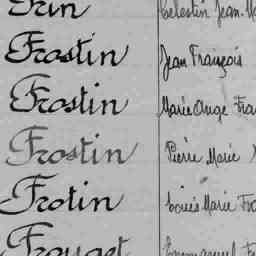 Frin Célestin Jean
Frostin Jean François
Frostin Marie Ange
Frostin Pierre Marie
Frotin Louis Marie
Frouget Emmanuel